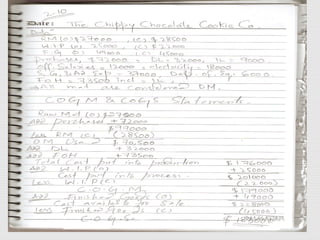 2.10
Date: The Chippy Chocolate Cookie Co.
Data
RM (O) $27000, (C) $28500
W.I.P (O) 25000, (C) $22000
F.G (O) 49000, (C) 45000
purchases, $72000 - DL = 32000, IL = 7000
S, G, & AD Exp = 39000, Dep. of eq. 6000
All are considered DM.
COGM & COGS Statements.
Raw Mat (O) $27000
ADD purchased + 72000
$99000
Less RM (C) (28500)
DM Used $70,500
ADD DL + 32000
ADD FOH + 73500
Total Cost put into production $176000
ADD W.I.P (O) + 25000
Cost put into process $201000
Less W.I.P (C) (22000)
C.O.G.M $179000
ADD Finished Goods (O) + 49000
Cost available for Sale 228000
Less Finished Goods (C) (45000)
C.O.G.S